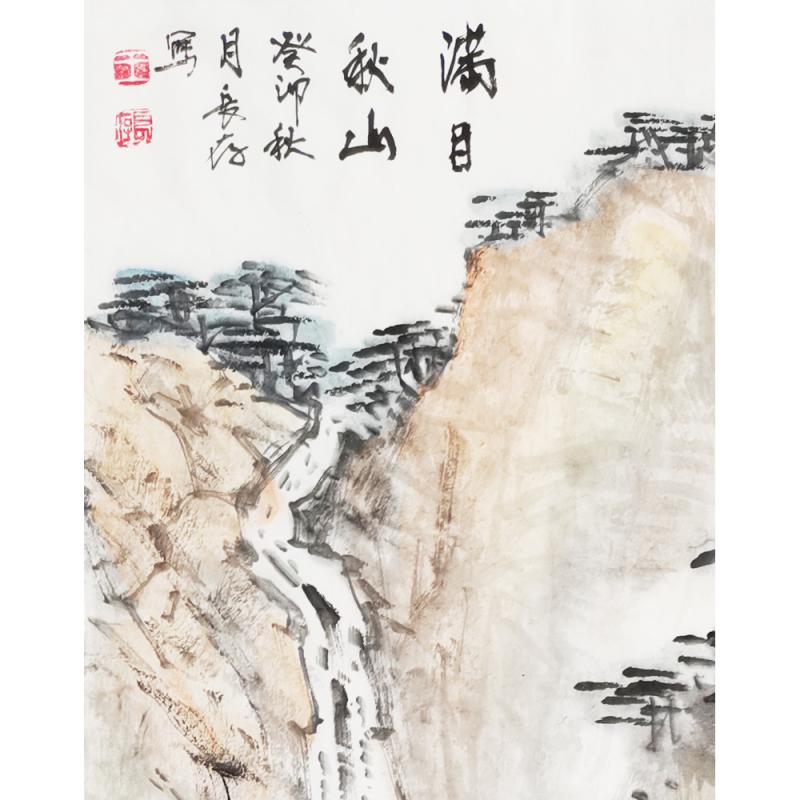 满目
秋山
癸卯秋
月長存
写